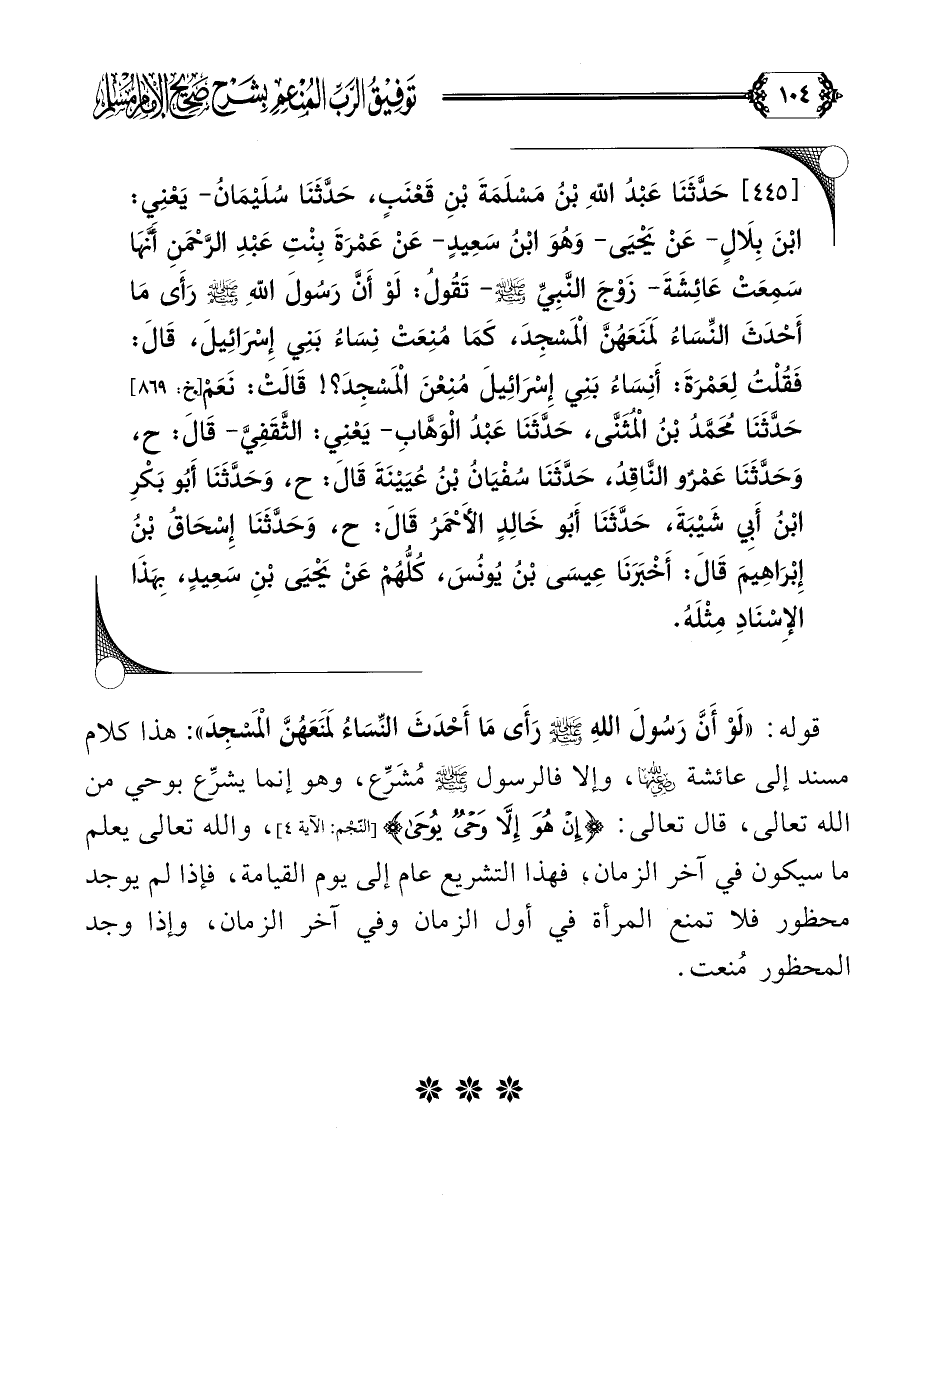 ١٠٤
توفيق الرب المنعم بشرح صحيح الإمام مسلم
[٤٤٥] حَدَّثَنَا عَبْدُ اللهِ بْنُ مَسْلَمَةَ بْنِ قَعْنَبٍ، حَدَّثَنَا سُلَيْمَانُ- يَعْنِي:
ابْنَ بِلَالٍ- عَنْ يَحْيَى- وَهُوَ ابْنُ سَعِيدٍ- عَنْ عَمْرَةَ بِنْتِ عَبْدِ الرَّحْمَنِ أَنَّهَا
سَمِعَتْ عَائِشَةَ- زَوْجَ النَّبِيِّ ﷺ- تَقُولُ: لَوْ أَنَّ رَسُولَ اللهِ ﷺ رَأَى مَا
أَحْدَثَ النِّسَاءُ لَمَنَعَهُنَّ الْمَسْجِدَ، كَمَا مُنِعَتْ نِسَاءُ بَنِي إِسْرَائِيلَ، قَالَ:
فَقُلْتُ لِعَمْرَةَ: أَنِسَاءُ بَنِي إِسْرَائِيلَ مُنِعْنَ الْمَسْجِدَ؟! قَالَتْ: نَعَمْ[خ: ٨٦٩]
حَدَّثَنَا مُحَمَّدُ بْنُ الْمُثَنَّى، حَدَّثَنَا عَبْدُ الْوَهَّابِ- يَعْنِي: الثَّقَفِيَّ- قَالَ: ح،
وَحَدَّثَنَا عَمْرٌو النَّاقِدُ، حَدَّثَنَا سُفْيَانُ بْنُ عُيَيْنَةَ قَالَ: ح، وَحَدَّثَنَا أَبُو بَكْرِ
ابْنُ أَبِي شَيْبَةَ، حَدَّثَنَا أَبُو خَالِدٍ الأَحْمَرُ قَالَ: ح، وَحَدَّثَنَا إِسْحَاقُ بْنُ
إِبْرَاهِيمَ قَالَ: أَخْبَرَنَا عِيسَى بْنُ يُونُسَ، كُلُّهُمْ عَنْ يَحْيَى بْنِ سَعِيدٍ، بِهَذَا
الإِسْنَادِ مِثْلَهُ.
قوله: «لَوْ أَنَّ رَسُولَ اللهِ ﷺ رَأَى مَا أَحْدَثَ النِّسَاءُ لَمَنَعَهُنَّ الْمَسْجِدَ»: هذا كلام
مسند إلى عائشة رضي الله عنها، وإلا فالرسول ﷺ مُشَرِّع، وهو إنما يشرِّع بوحي من
الله تعالى، قال تعالى: ﴿إِنْ هُوَ إِلَّا وَحْيٌ يُوحَىٰ﴾ [النّجْم: الآية ٤]، والله تعالى يعلم
ما سيكون في آخر الزمان، فهذا التشريع عام إلى يوم القيامة، فإذا لم يوجد
محظور فلا تمنع المرأة في أول الزمان وفي آخر الزمان، وإذا وجد
المحظور مُنعت.